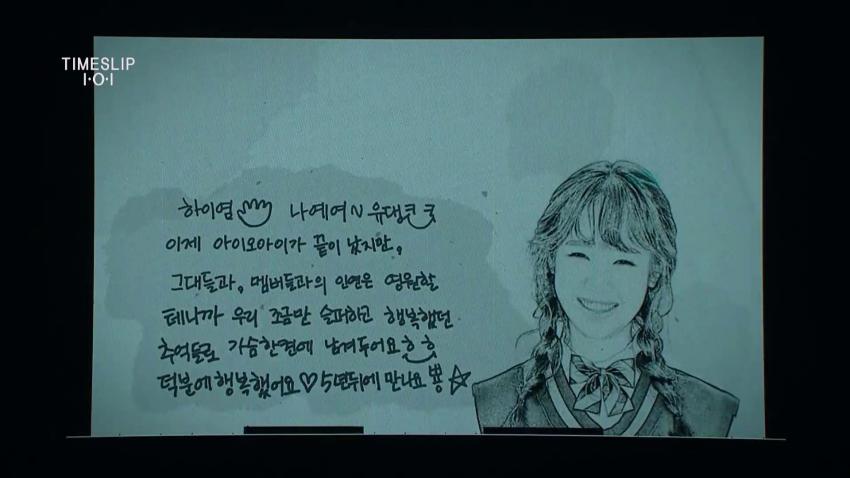 TIMESLIP
I·O·I
하이염 나예여~ 유댕코ㅋ
이제 아이오아이가 끝이 났지만,
그대들과, 멤버들과의 인연은 영원할
테니까 우리 조금만 슬퍼하고 행복했던
추억들로 가슴한켠에 남겨두어요ㅎㅎ
덕분에 행복했어요♡ 5년뒤에 만나요 뿅☆